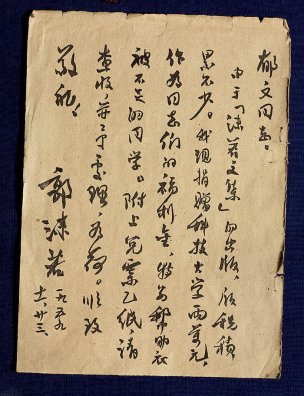 郁文同志：
由于「沫若文集」的出版，版税积
累不少。我现捐赠科技大学两万元，
作为同志们的福利金，特为帮助衣
被不足的同学。附上兑票乙纸，请
查收，并予处理，为荷。顺致
敬礼！
郭沫若
一九五九
十二、廿三、